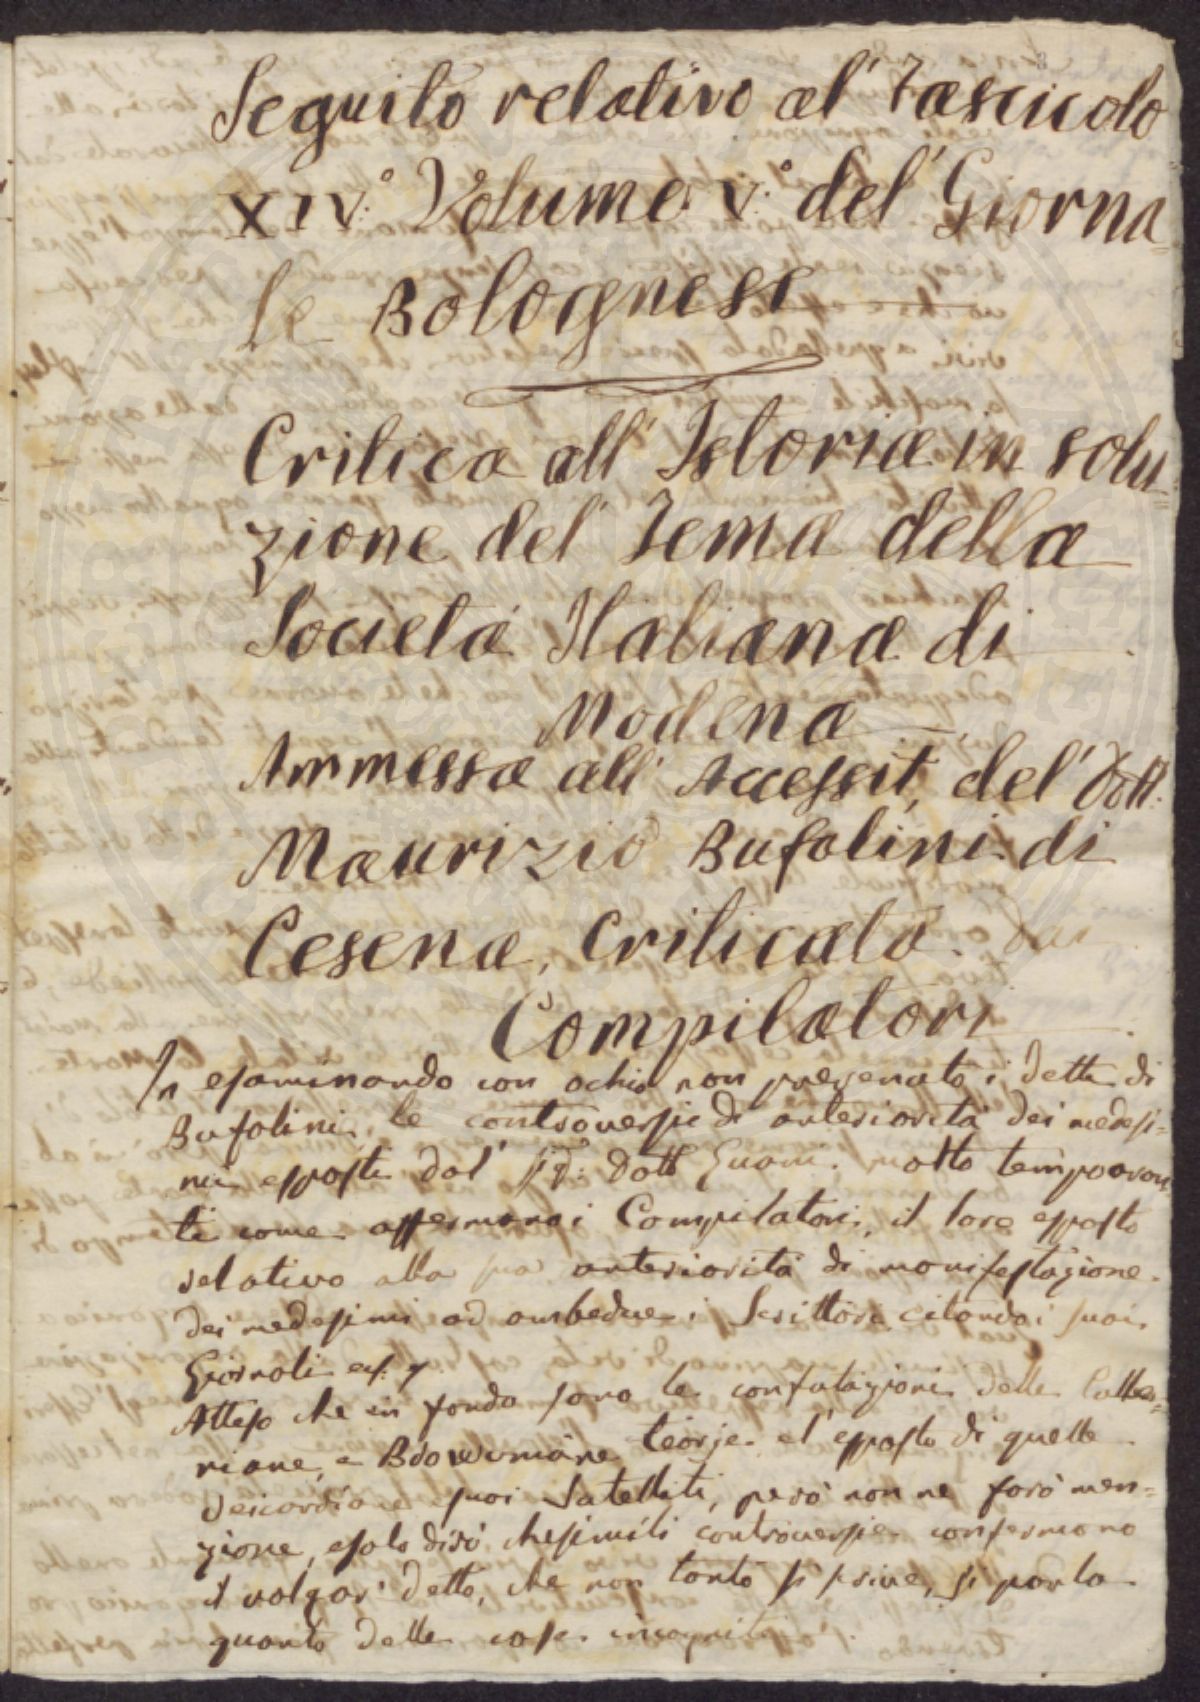 Seguito relativo al' Fascicolo
XIV.° Volume V.° del' Giorna
le Bolognese
Critica all' Istoria in solu=
zione del' Tema della
Società Italiana di
Modena
Ammessa all' Accessit, del' Dott.
Maurizio Bufalini di
Cesena, Criticato dai
Compilatori
In esaminando con ochio non pregenato i detti di
Bufolini, le controversie di anteriorità dei medesi=
mi esposti dal' Dott Guani. molto
te come affermano i Compilatori, il loro esposto
relativo alla sua anteriorità di manifestazione
dei medesimi ad ambedue i Scrittori citando i suoi
Giornali
Atteso che in fondo sono le confutazioni delle Culle=
niane, e Browniane teorje el' esposto di quelle
deicordio e suoi Satelliti, però non ne farò men=
zione, e solo dirò, che simili controversie confermano
il volgar' detto, che non tanto si scrive, si parla
quanto delle cose incognite.